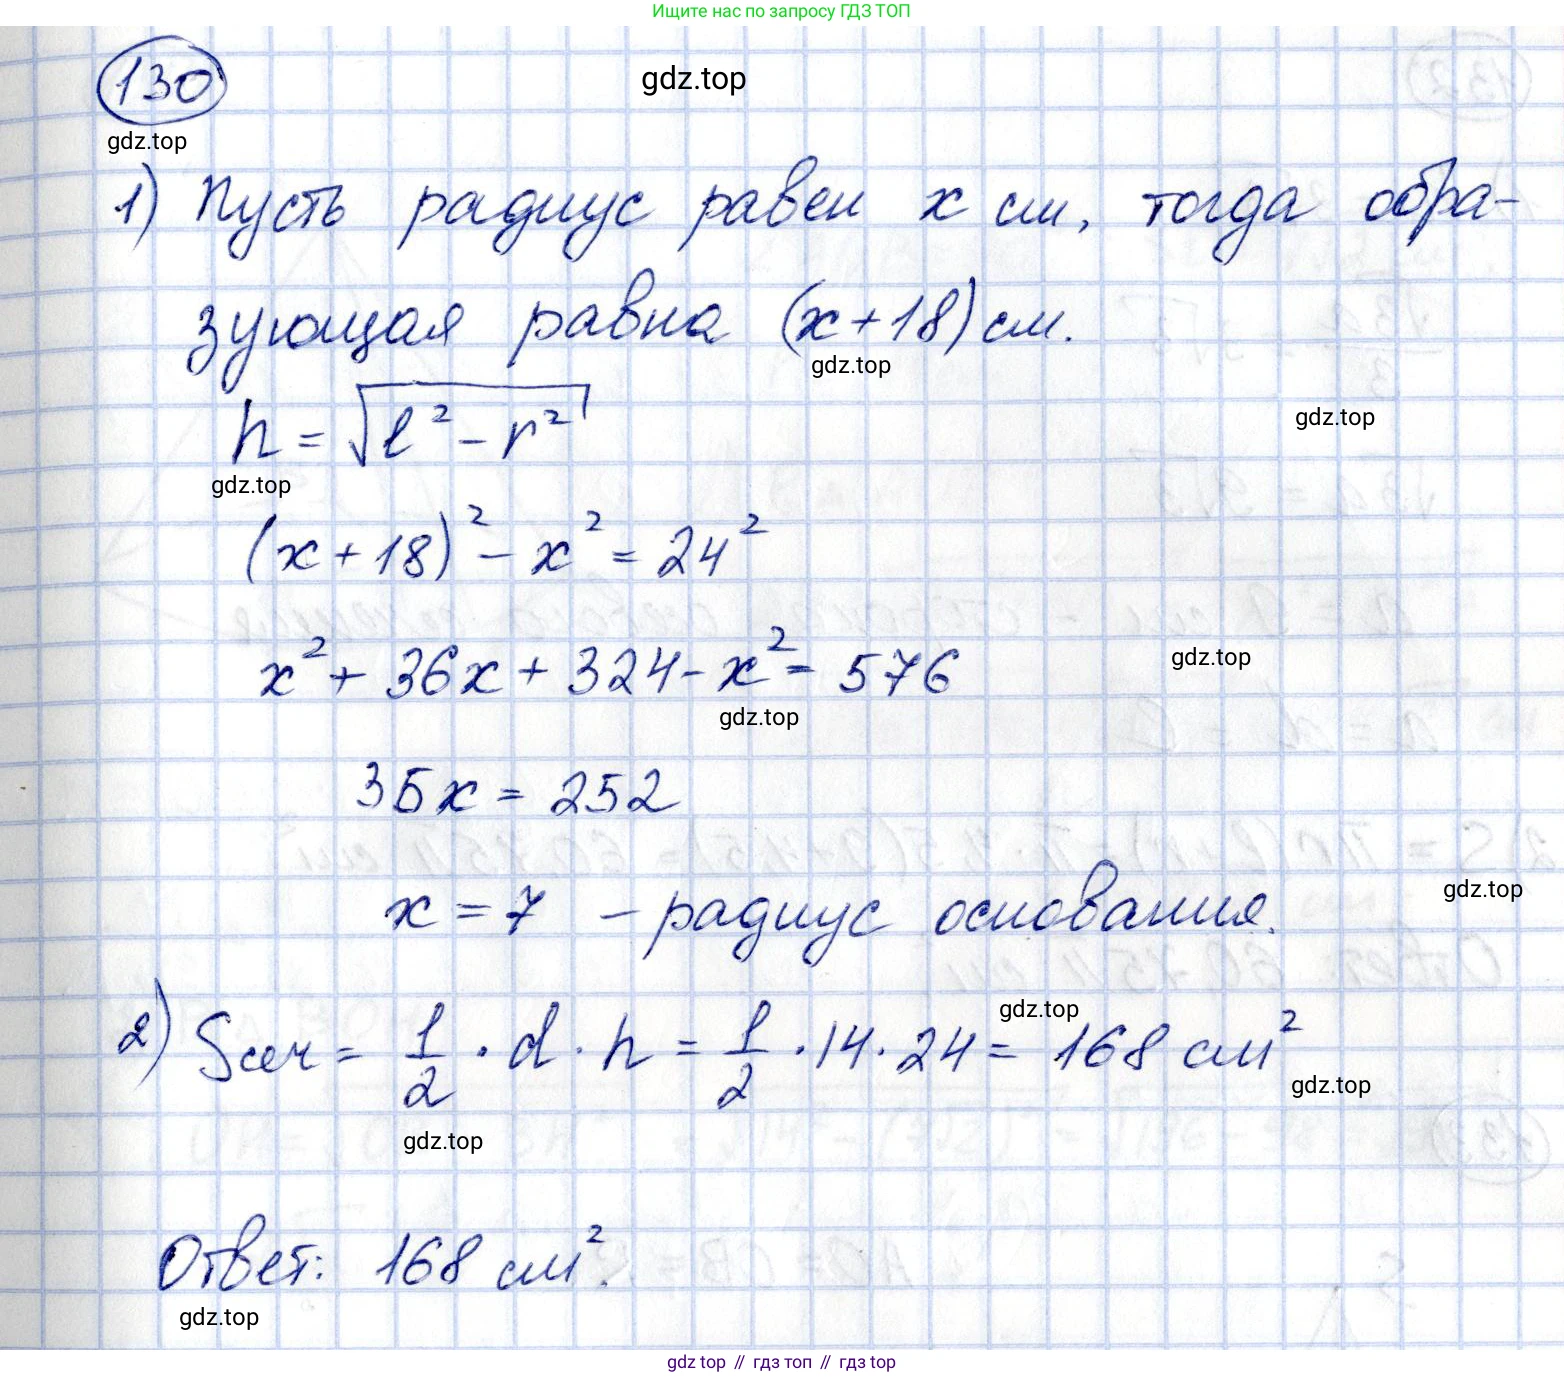 Ищите нас по запросу ГДЗ ТОП
130
gdz.top
gdz.top
1) Пусть радиус равен x см, тогда обра-
зующая равна (x+18) см.
gdz.top
h = √(l² - r²)
gdz.top
gdz.top
(x + 18)² - x² = 24²
x² + 36x + 324 - x² = 576
gdz.top
gdz.top
36x = 252
x = 7 - радиус основания.
gdz.top
2) Sсеч = 1/2 · d · h = 1/2 · 14 · 24 = 168 см²
gdz.top
gdz.top
gdz.top
Ответ: 168 см².
gdz.top
gdz top // гдз топ // гдз top